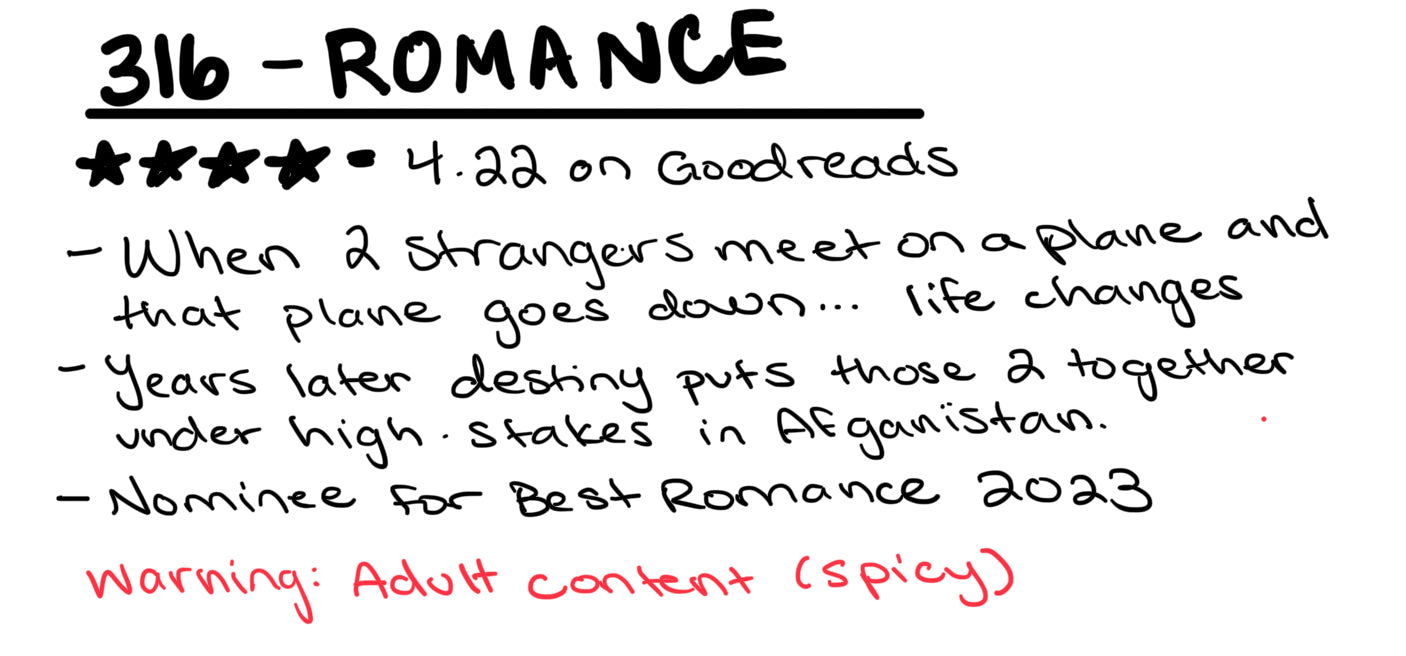 316 - ROMANCE
★★★★ - 4.22 on Goodreads
- When 2 strangers meet on a plane and
that plane goes down... life changes
- Years later destiny puts those 2 together
under high-stakes in Afganistan.
- Nominee for Best Romance 2023
Warning: Adult content (spicy)